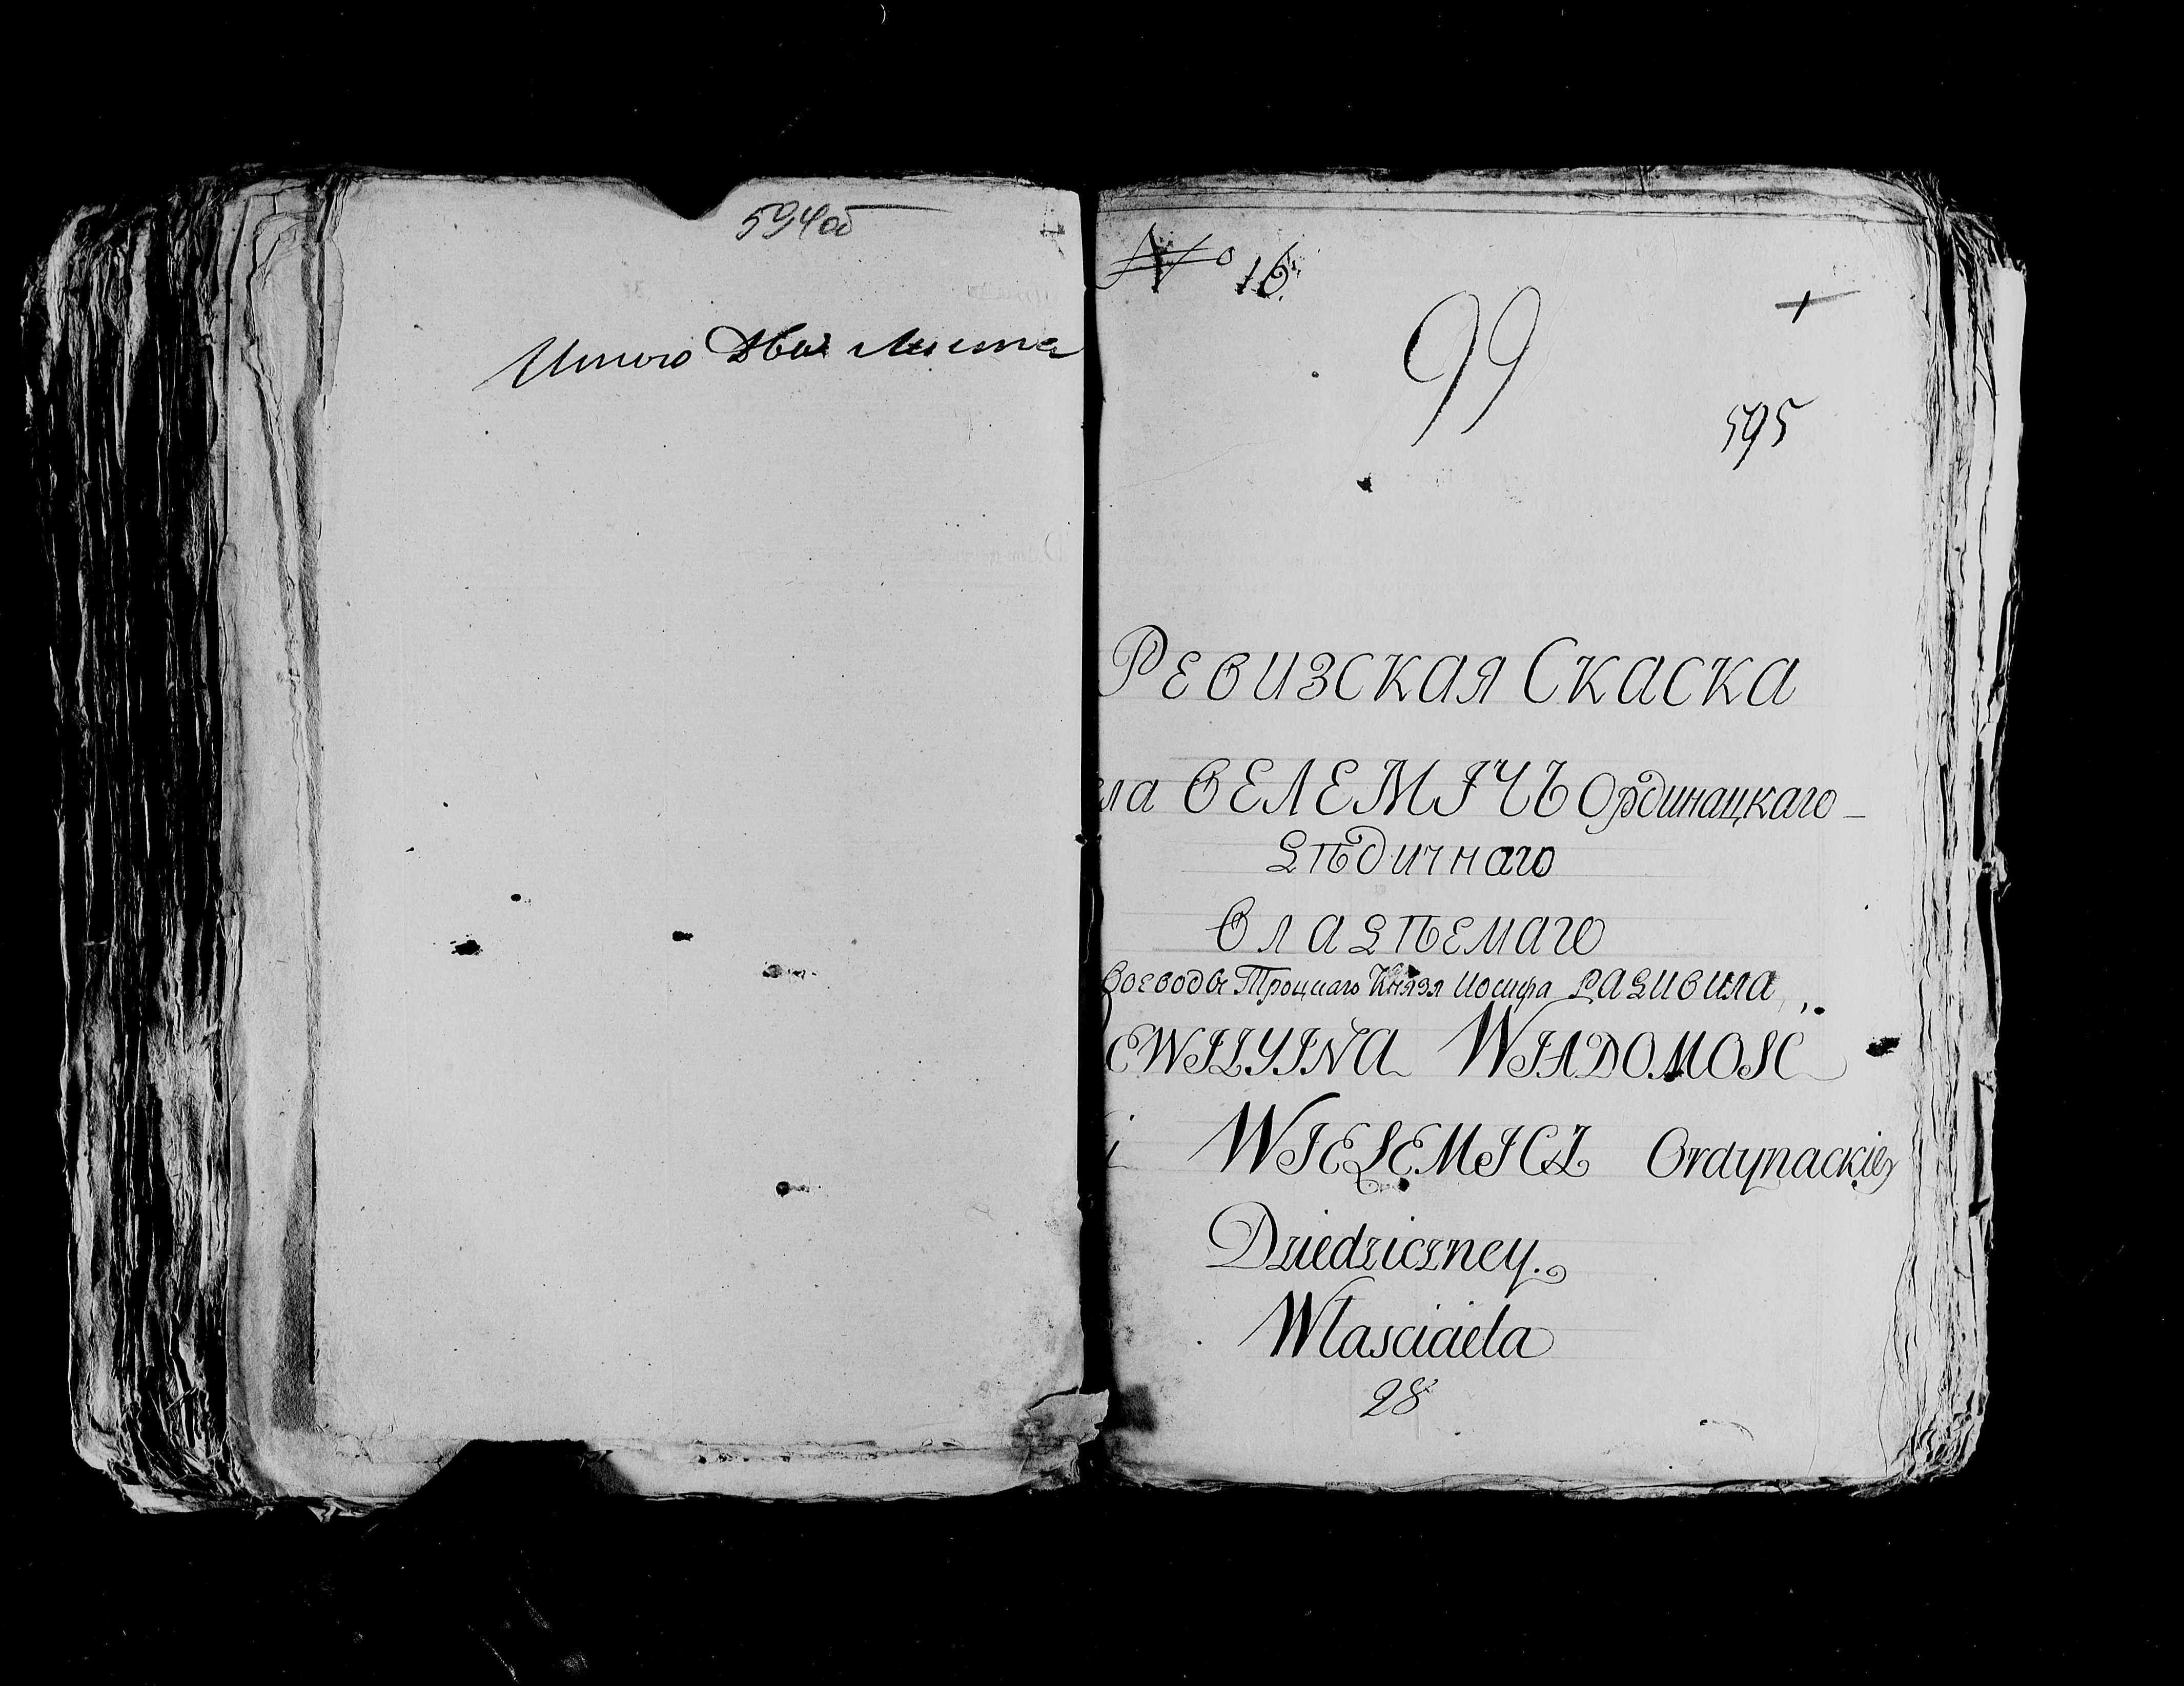 594об
Итого два листа
№ 16.
99
595
Ревизская Скаска
ла ВЕЛЕМІЧЪ Ординацкаго
дѣдичнаго
владѣемаго
Воеводы Троцкаго Князя Иосифа РАДИВИЛА
EWIZYINA WIADOMOSC
i WIELEMICZ Ordynackiey
Dziedziczney.
Własciciela
28